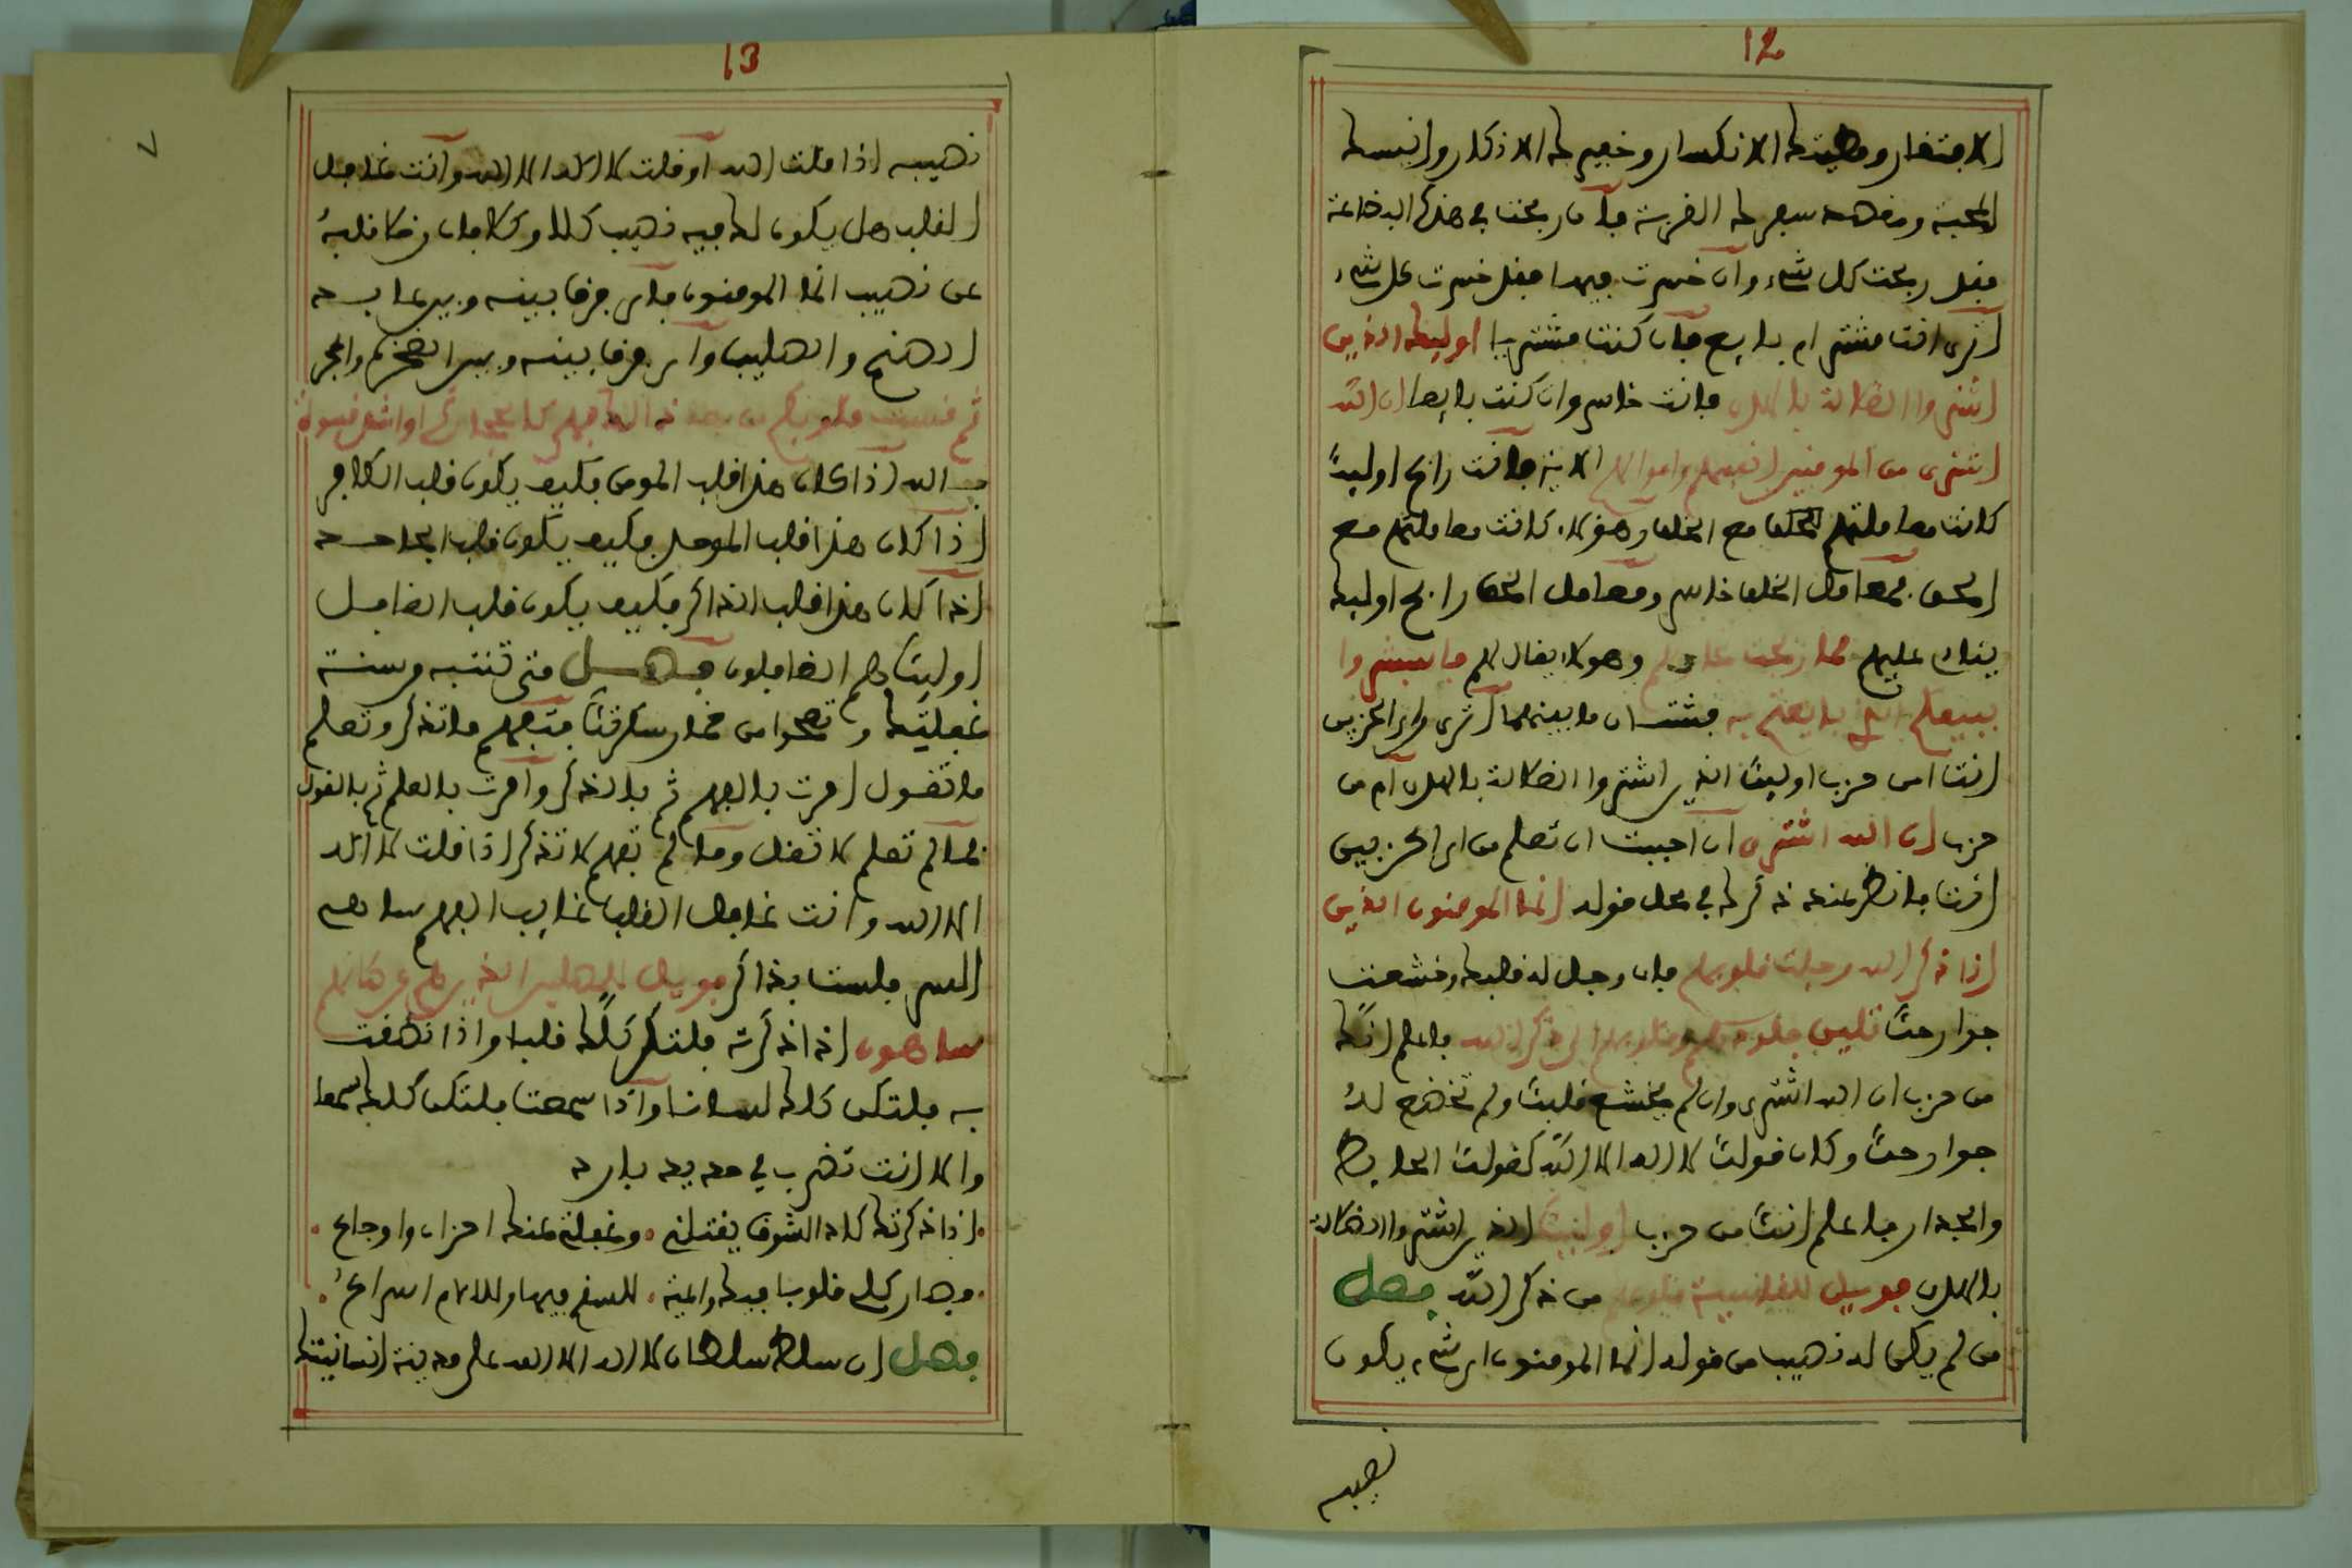 12
الافتقار ومطيتك الانكسار وخفيرك الاذكار وانيسك
المحبة ومقصد سيرك القربة فان ربحت في هذه البضاعة
فقد ربحت كل شيء وان خسرت فيها فقد خسرت كل شيء
اترى انت مشتر ام بايع فان كنت مشتريا اوليك الذين
اشتروا الضلالة بالهدى فانت خاسر وان كنت بايعا ان الله
اشترى من المومنين انفسهم واموالهم الاية فانت رابح اوليك
كانت معاملتهم مع الخلق وهولاء كانت معاملتهم مع
الحق فمعامل الخلق خاسر ومعامل الحق رابح اوليك
ينادى عليهم فما ربحت تجارتهم وهولاء يقال لهم فاستبشروا
ببيعكم الذي بايعتم به فشتان ما بينهما اترى من اي الحزبين
انت امن حزب اوليك الذين اشتروا الضلالة بالهدى ام من
حزب ان الله اشترى ان احببت ان تعلم من اي الحزبين
انت فانظر عند ذكرك في محل قوله انما المومنون الذين
اذا ذكر الله وجلت قلوبهم فان وجل له قلبك وخشعت
جوارحك تلين جلودهم وقلوبهم الى ذكر الله فاعلم انك
من حزب ان الله اشترى وان لم يخشع قلبك ولم تخضع له
جوارحك وكان قولك لا اله الا الله كقولك الحايط
والجدار فاعلم انك من حزب اوليك الذين اشتروا الضلالة
بالهدى فويل للقاسية قلوبهم من ذكر الله فصل
من لم يكن له نصيب من قوله انما المومنون اي شيء يكون
نصيبه
13
نصيبه اذا قلت الله او قلت لا اله الا الله وانت غافل
القلب هل يكون لك فيه نصيب كلا وكلا فان خلا قلبك
عن نصيب انما المومنون فاي فرق بينه وبين عابد
الصنم والصليب واي فرق بينه وبين الصخرة والحجر
ثم قست قلوبكم من بعد ذلك فهي كالحجارة او اشد قسوة
الله اذا كان هذا قلب المومن فكيف يكون قلب الكافر
اذا كان هذا قلب الموحد فكيف يكون قلب الجاحد
اذا كان هذا قلب الذاكر فكيف يكون قلب الغافل
اوليك هم الغافلون فصل متى تنتبه من سنة
غفلتك وتصحوا من خمار سكرتك فتفهم ما تذكر وتعلم
ما تقول امرت بالفهم ثم بالذكر وامرت بالعلم ثم بالقول
فما لم تعلم لا تقل وما لم تفهم لا تذكر اذا قلت لا اله
الا الله وانت غافل القلب غايب الفهم ساهي
السر فلست بذاكر فويل للمصلين الذين هم عن صلاتهم
ساهون اذا ذكرته فلتكن كلك قلبا واذا نطقت
به فلتكن كلك لسانا واذا سمعت فلتكن كلك سمعا
والا انت تضرب في حديد بارد
اذا ذكرتك كاد الشوق يقتلني وغفلتي عنك احزان واوجاع
وصار كلي قلوبا فيك داعية للسقم فيها وللالام اسراع
فصل ان سلط سلطان لا اله الا الله على مدينة انسانيتك
٧